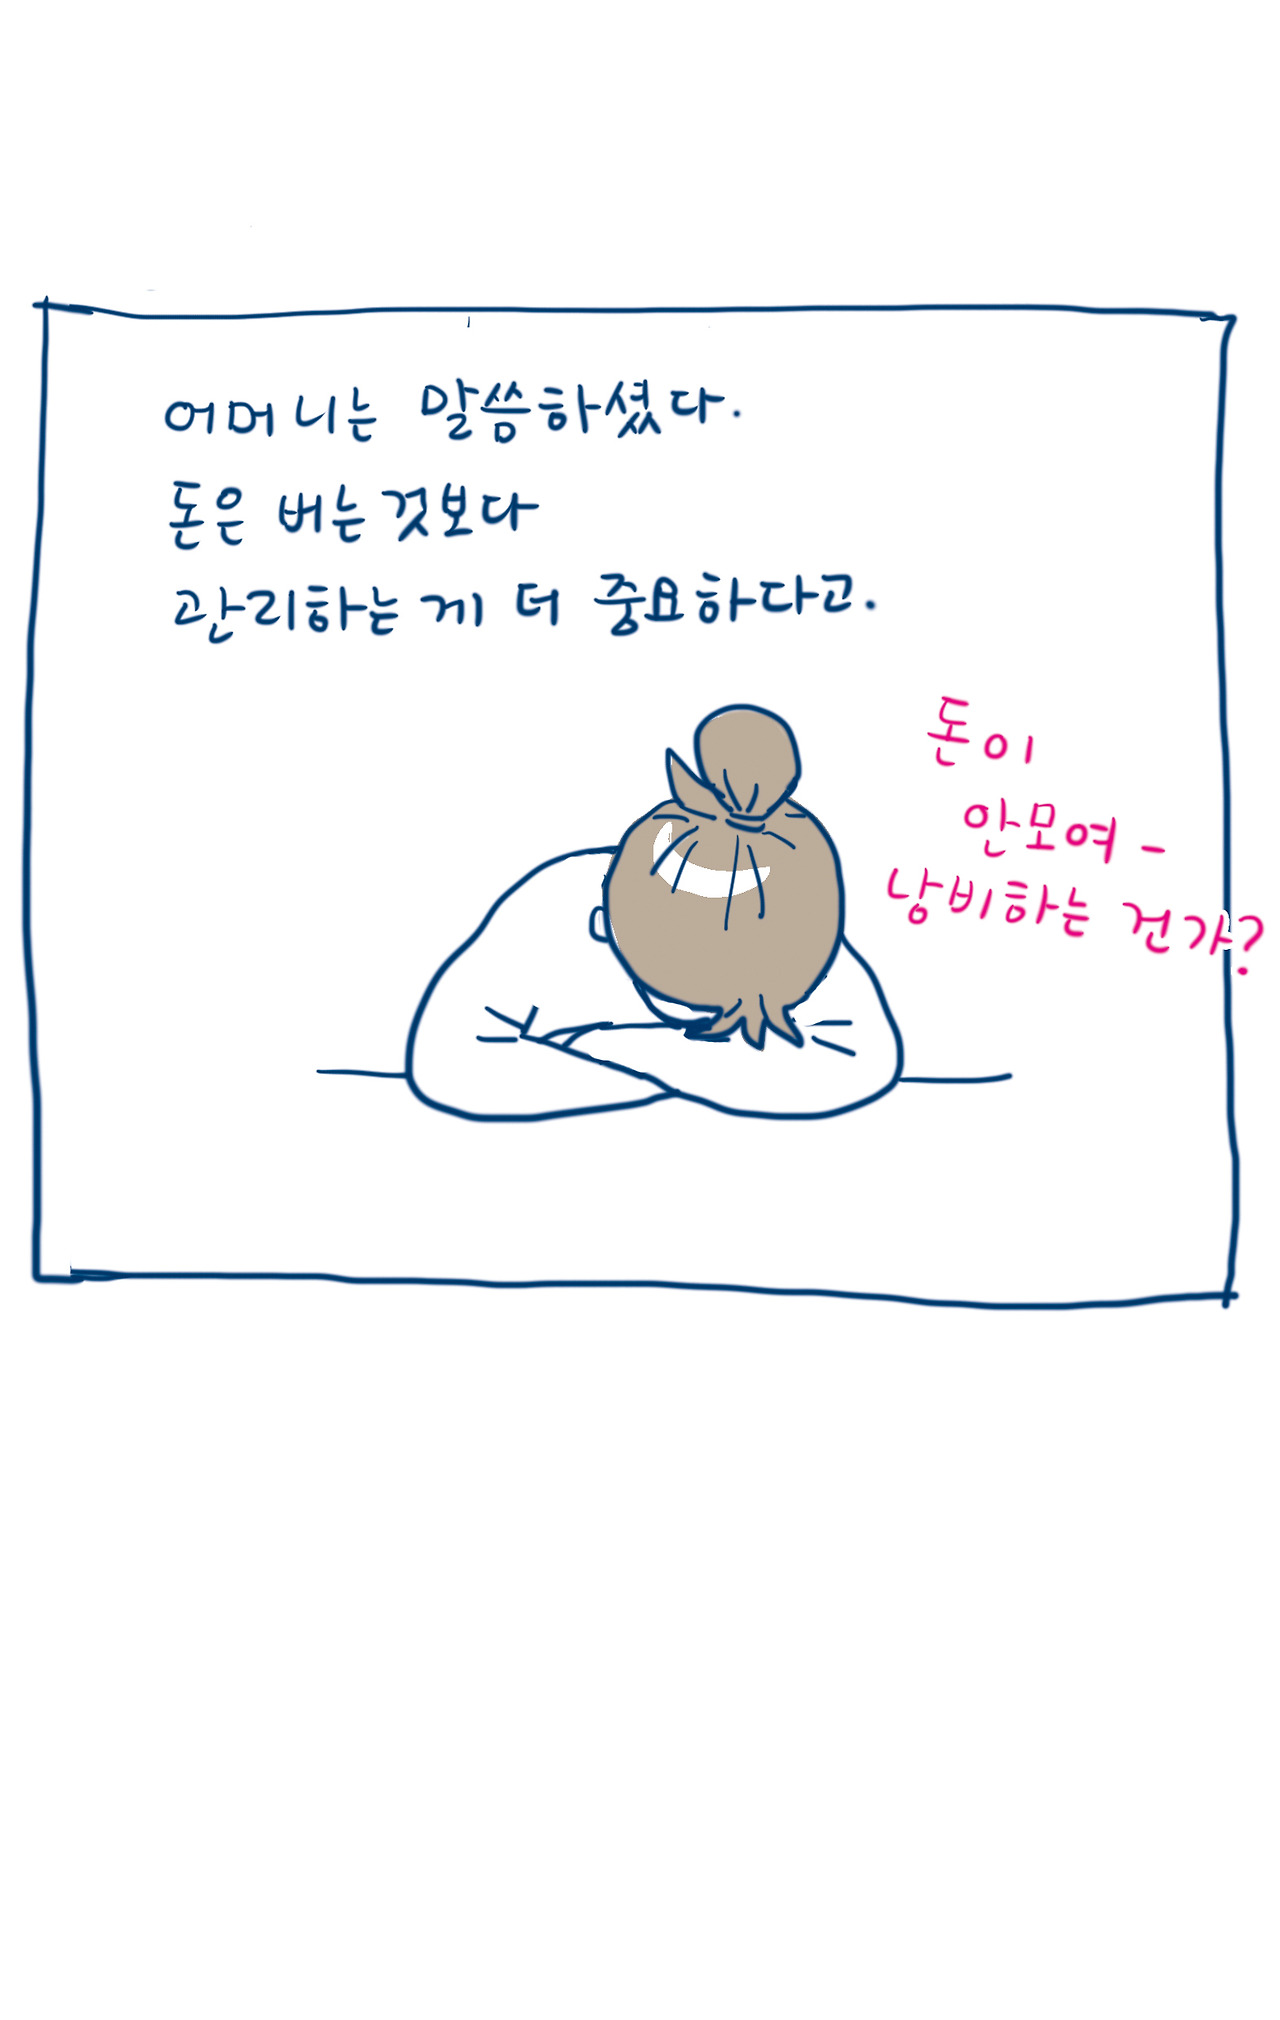 어머니는 말씀하셨다.
돈은 버는 것보다
관리하는 게 더 중요하다고.
돈이
안모여-
낭비하는 건가?